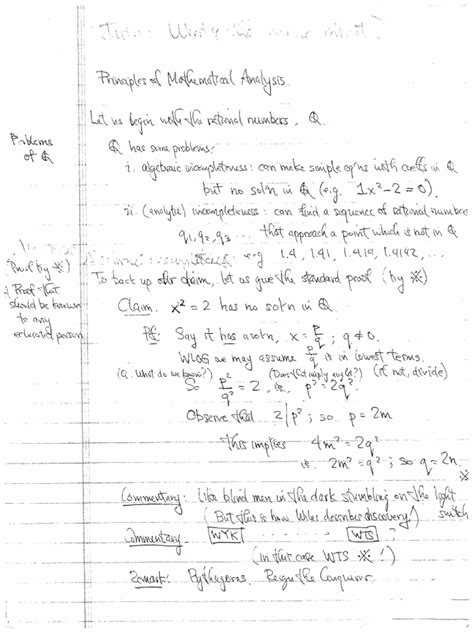 Principles of Mathematical Analysis.
Let us begin with the rational numbers, Q
Problems
of Q
Q has some problems:
i. algebraic incompleteness: can make simple eq'ns with coeffs in Q
but no sol'n in Q (e.g. 1x²-2=0).
ii. (analytic) incompleteness: can find a sequence of rational numbers
q₁, q₂, q₃ ... that approach a point which is not in Q
e.g 1.4, 1.41, 1.414, 1.4142, ...
(Proof by ※)
Proof that
should be known
to any
educated person
To back up our claim, let us give the standard proof (by ※)
Claim. x² = 2 has no sol'n in Q.
Pf: Say it has a sol'n, x = p/q ; q ≠ 0.
WLOG we may assume p/q is in lowest terms.
(Q. What do we know?) (if not, divide)
So p²/q² = 2, i.e. p² = 2q²
Observe that 2|p²; so p = 2m
This implies 4m² = 2q²
i.e. 2m² = q²; so q = 2n.
Commentary: Like blind men in the dark stumbling on the light
switch
(But this is how Wiles describes discovery!)
Commentary. WYK WTS
(in this case WTS ※!)
Remark: Pythagoras.